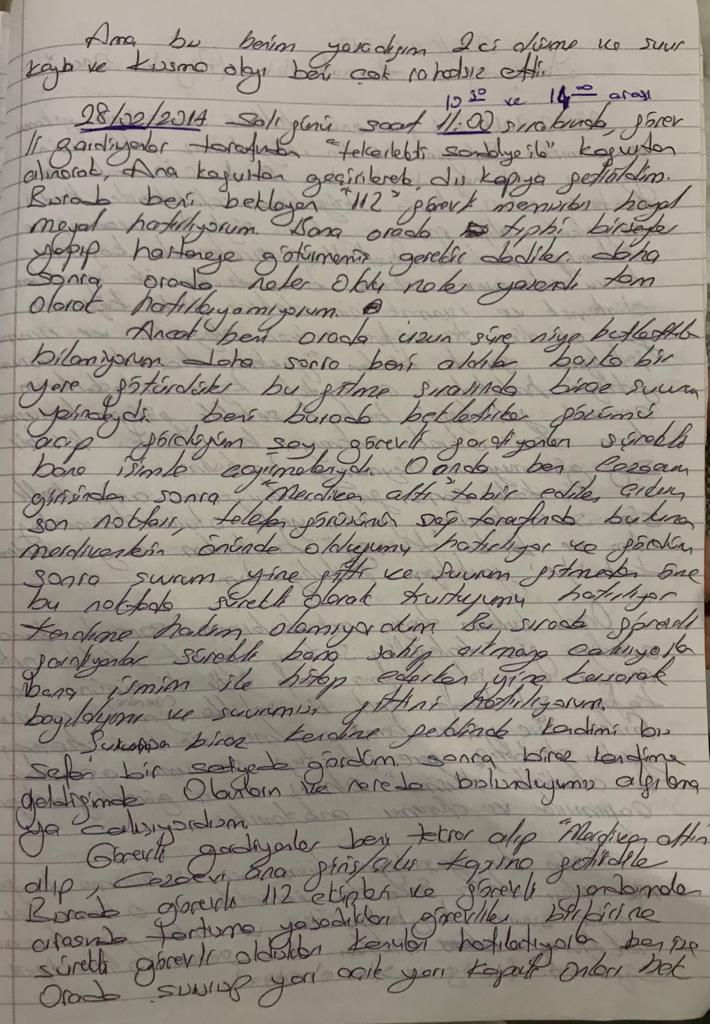 Ama bu benim yaşadığım 2ci düşme ve şuur
kaybı ve kusma olayı beni çok rahatsız etti.
10 30 ve 14 00 arası
28/02/2014 Salı günü saat 11:00 sıralarında, görev
li gardiyanlar tarafından "tekerlekli sandalye ile" koğuştan
alınarak, Ana koğuştan geçirilerek, dış kapıya getirildim.
Burada beni bekleyen "112" görevli memurları hayal
meyal hatırlıyorum. Bana orada tıbbi birşeyler
yapıp hastaneye götürmemiz gerekir dediler. daha
sonra orada neler oldu neler yaşandı tam
olarak hatırlayamıyorum.
Ancak beni orada uzun süre niye beklettiler
bilemiyorum daha sonra beni aldılar başka bir
yere götürdüler bu gitme sırasında biraz şuurum
yerindeydi. beni burada bekletirken gözümü
açıp gördüğüm şey görevli gardiyanları sürekli
bana isimle çağırmalarıydı. O anda ben Cezaevi
girişinden sonra "Merdiven altı" tabir edilen
son noktası, telefon görüşünün sağ tarafında bulunan
merdivenlerin önünde olduğumu hatırlıyor ve gördüm
sonra şuurum yine gitti ve şuurum gitmeden önce
bu noktada sürekli olarak kustuğumu hatırlıyor
kendime hakim olamıyordum Bu sırada görevli
gardiyanlar sürekli bana sahip çıkmaya çalışıyorlar
bana ismim ile hitap ederken yine kusarak
bayıldığımı ve şuurumun gittiğini hatırlıyorum.
biraz kendime geldiğimde kendimi bu
sefer bir sedyede gördüm. sonra biraz kendime
geldiğimde Olanları ve nerede bulunduğumu algılama
ya çalışıyordum.
Görevli gardiyanlar beni tekrar alıp "Merdiven altın
alıp, Cezaevi ana giriş/çıkış kapısına getirdiler
Burada görevli 112 ekipleri ve görevli jandarmalar
arasında tartışma yaşadıkları görevliler birbirine
sürekli görevli oldukları konuları hatırlatıyorlar ben ise
Orada yarı açık yarı kapalı onları bek